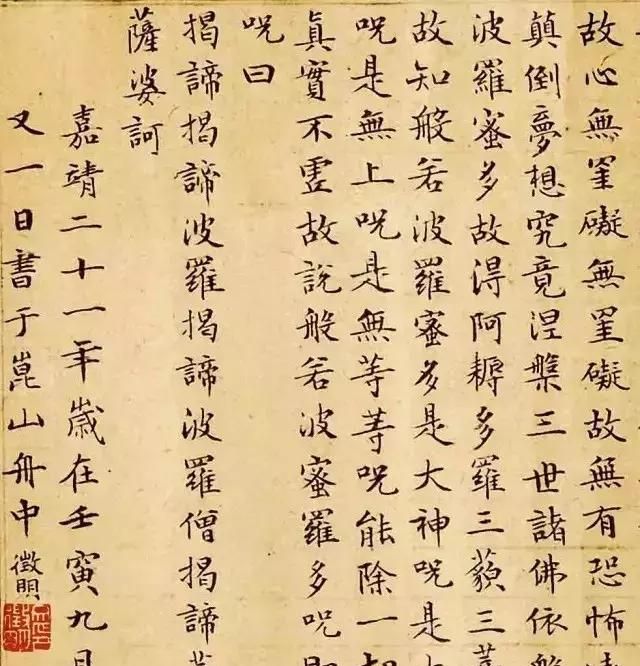 故心無罣礙無罣礙故無有恐怖
顛倒夢想究竟涅槃三世諸佛依般
波羅蜜多故得阿耨多羅三藐三菩
故知般若波羅蜜多是大神呪是
呪是無上呪是無等等呪能除一切
眞實不虛故說般若波蜜羅多呪即
呪曰
揭諦揭諦波羅揭諦波羅僧揭諦菩
薩婆訶
嘉靖二十一年歲在壬寅九月
又一日書于崑山舟中徵明